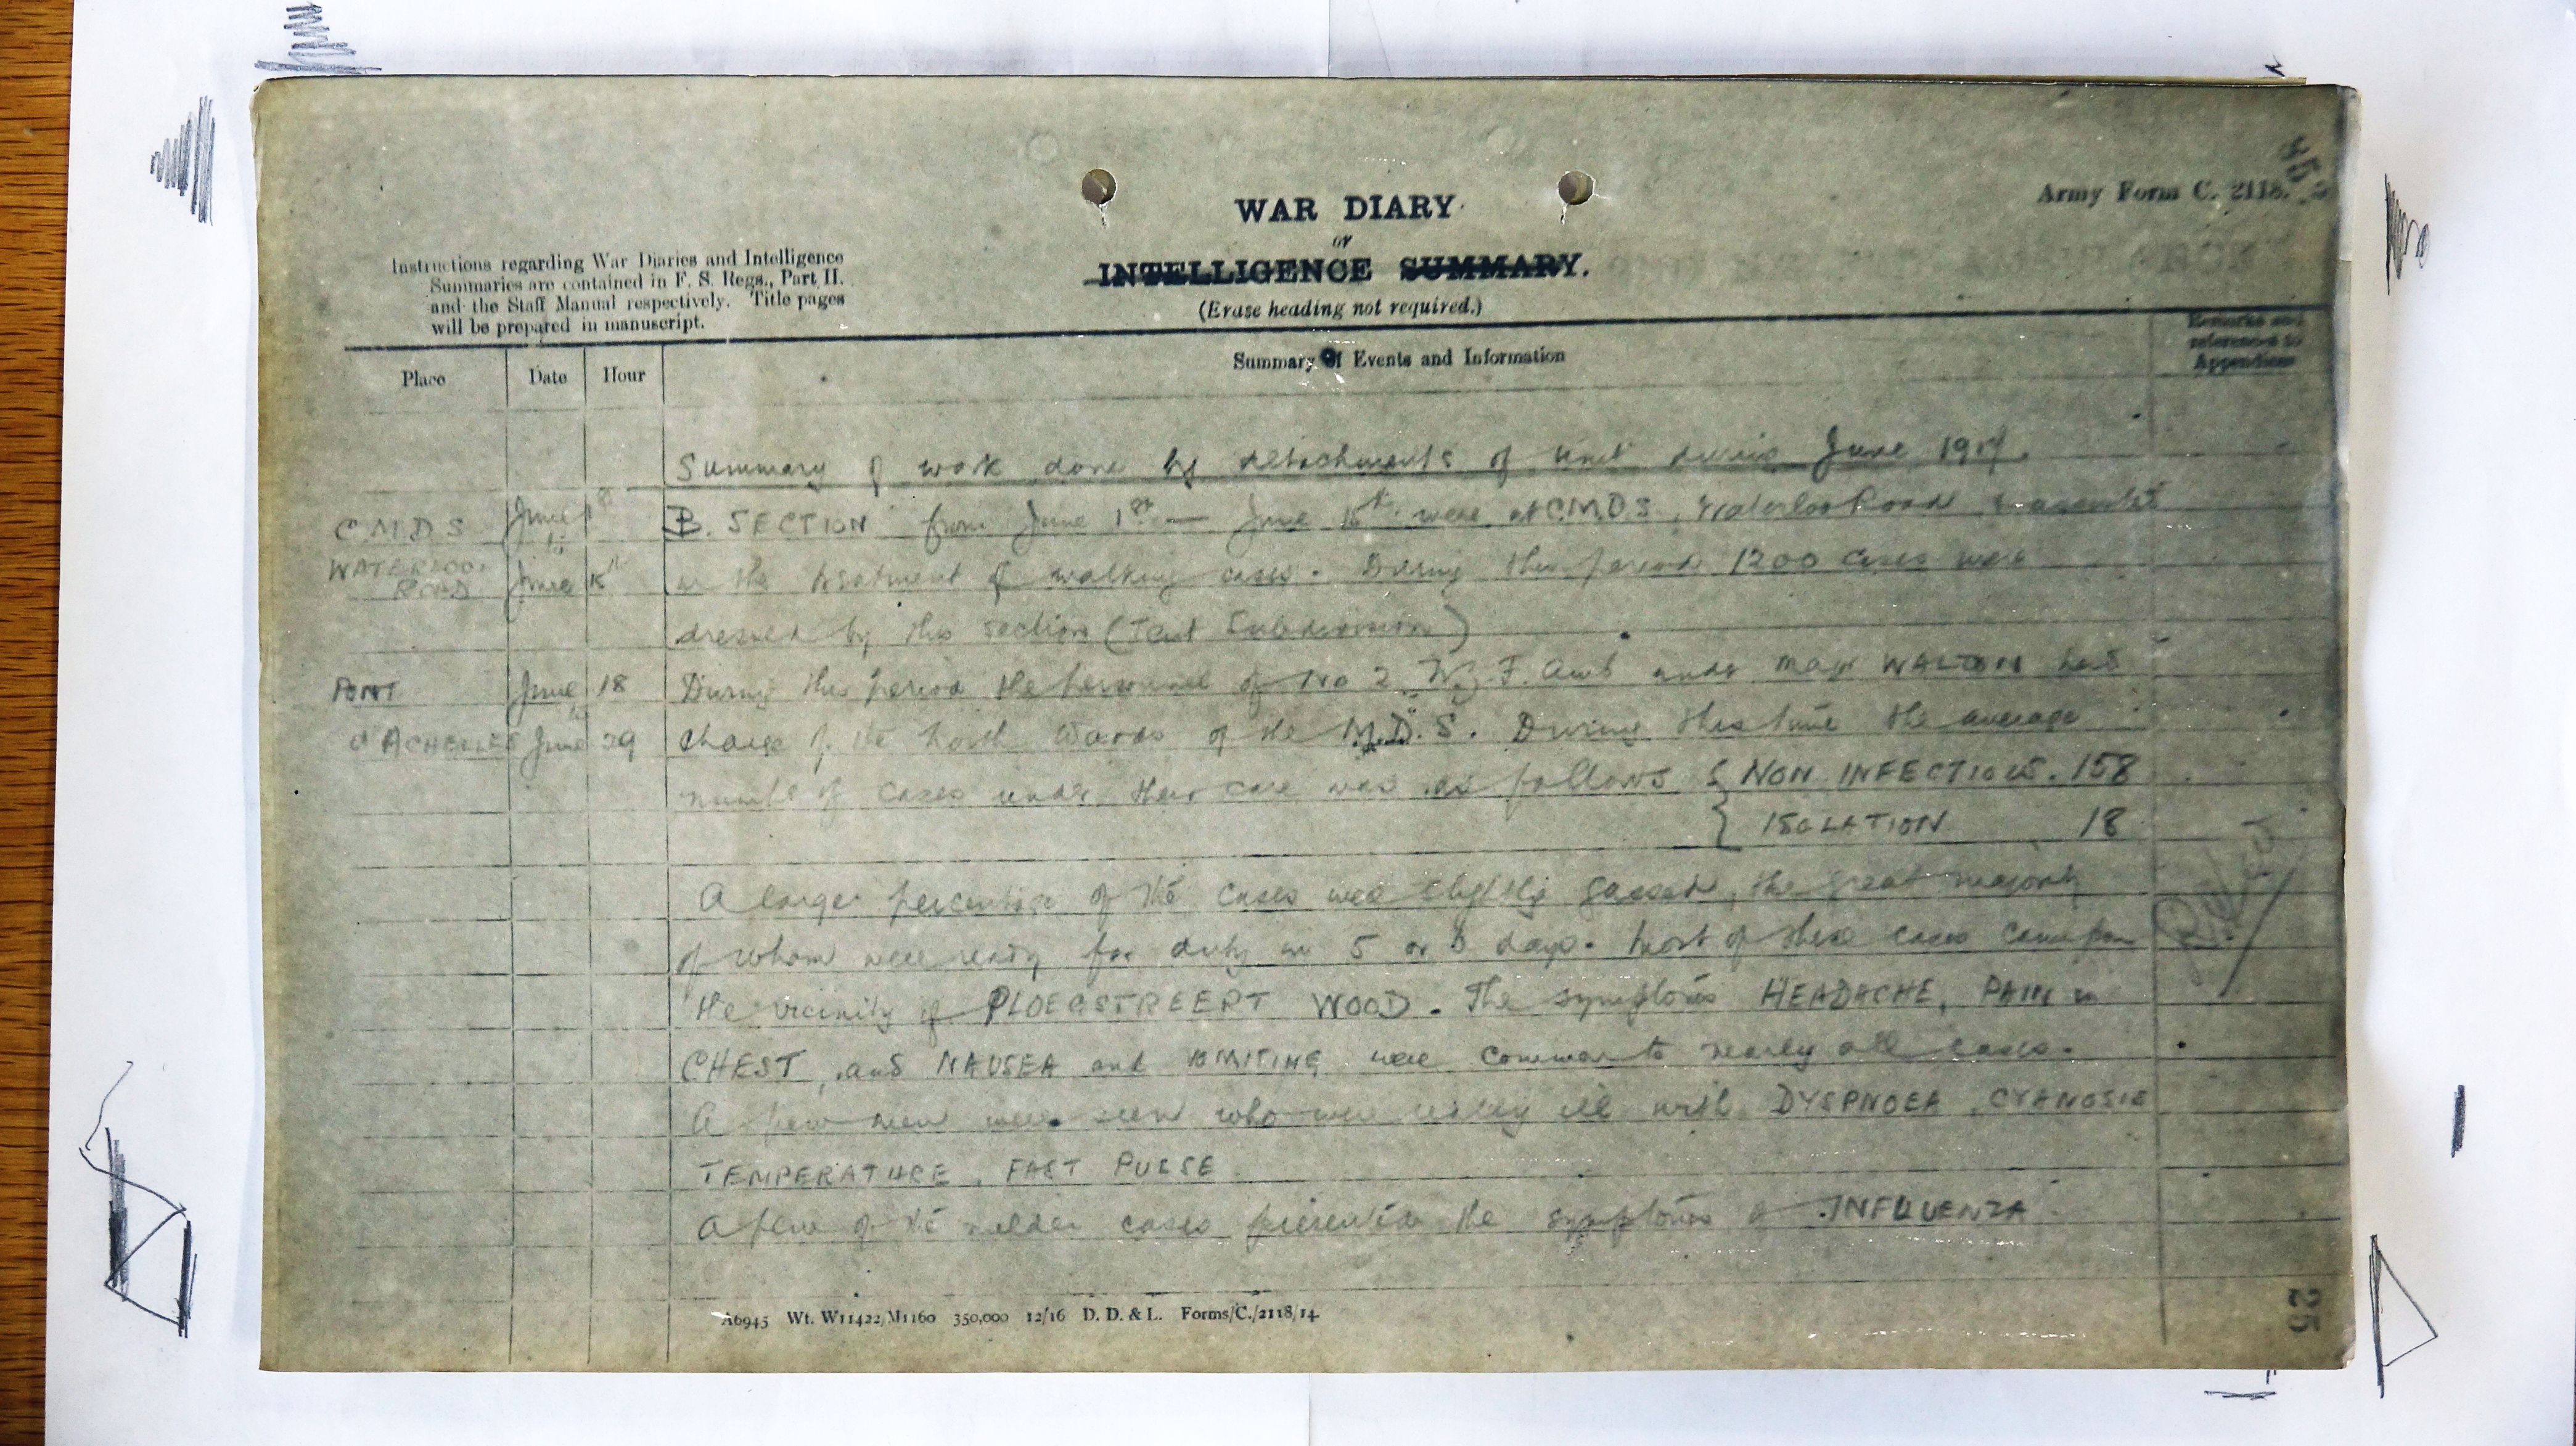 Army Form C. 2118.
WAR DIARY
or
INTELLIGENCE SUMMARY.
(Erase heading not required.)
Instructions regarding War Diaries and Intelligence
Summaries are contained in F. S. Regs., Part II.
and the Staff Manual respectively. Title pages
will be prepared in manuscript.
Place Date Hour Summary of Events and Information Remarks and references to Appendices
Summary of work done by detachments of Unit during June 1917.
C.M.D.S June 1st B. SECTION from June 1st — June 15th were at C.M.D.S, Waterloo Road & assisted
WATERLOO to
ROAD June 15th in the treatment of walking cases. During this period 1200 cases were
dressed by this section (Tent Subdivision)
PONT June 18 During this period the personnel of No 2 N.Z.F. Amb under Major WALTON had
d'ACHELLES to June 29 charge of the North Wards of the M.D.S. During this time the average
number of cases under their care was as follows { NON INFECTIOUS. 158
{ ISOLATION 18
A large percentage of the cases were slightly gassed, the great majority
of whom were ready for duty in 5 or 6 days. Most of these cases came from
the vicinity of PLOEGSTREERT WOOD. The symptoms HEADACHE, PAIN in
CHEST, and NAUSEA and VOMITING were common to nearly all cases.
A few men were seen who were really ill with DYSPNOEA, CYANOSIS
TEMPERATURE, FAST PULSE.
A few of the milder cases presented the symptoms of INFLUENZA.
A6945 Wt. W11422/M1160 350,000 12/16 D. D. & L. Forms/C./2118/14
25